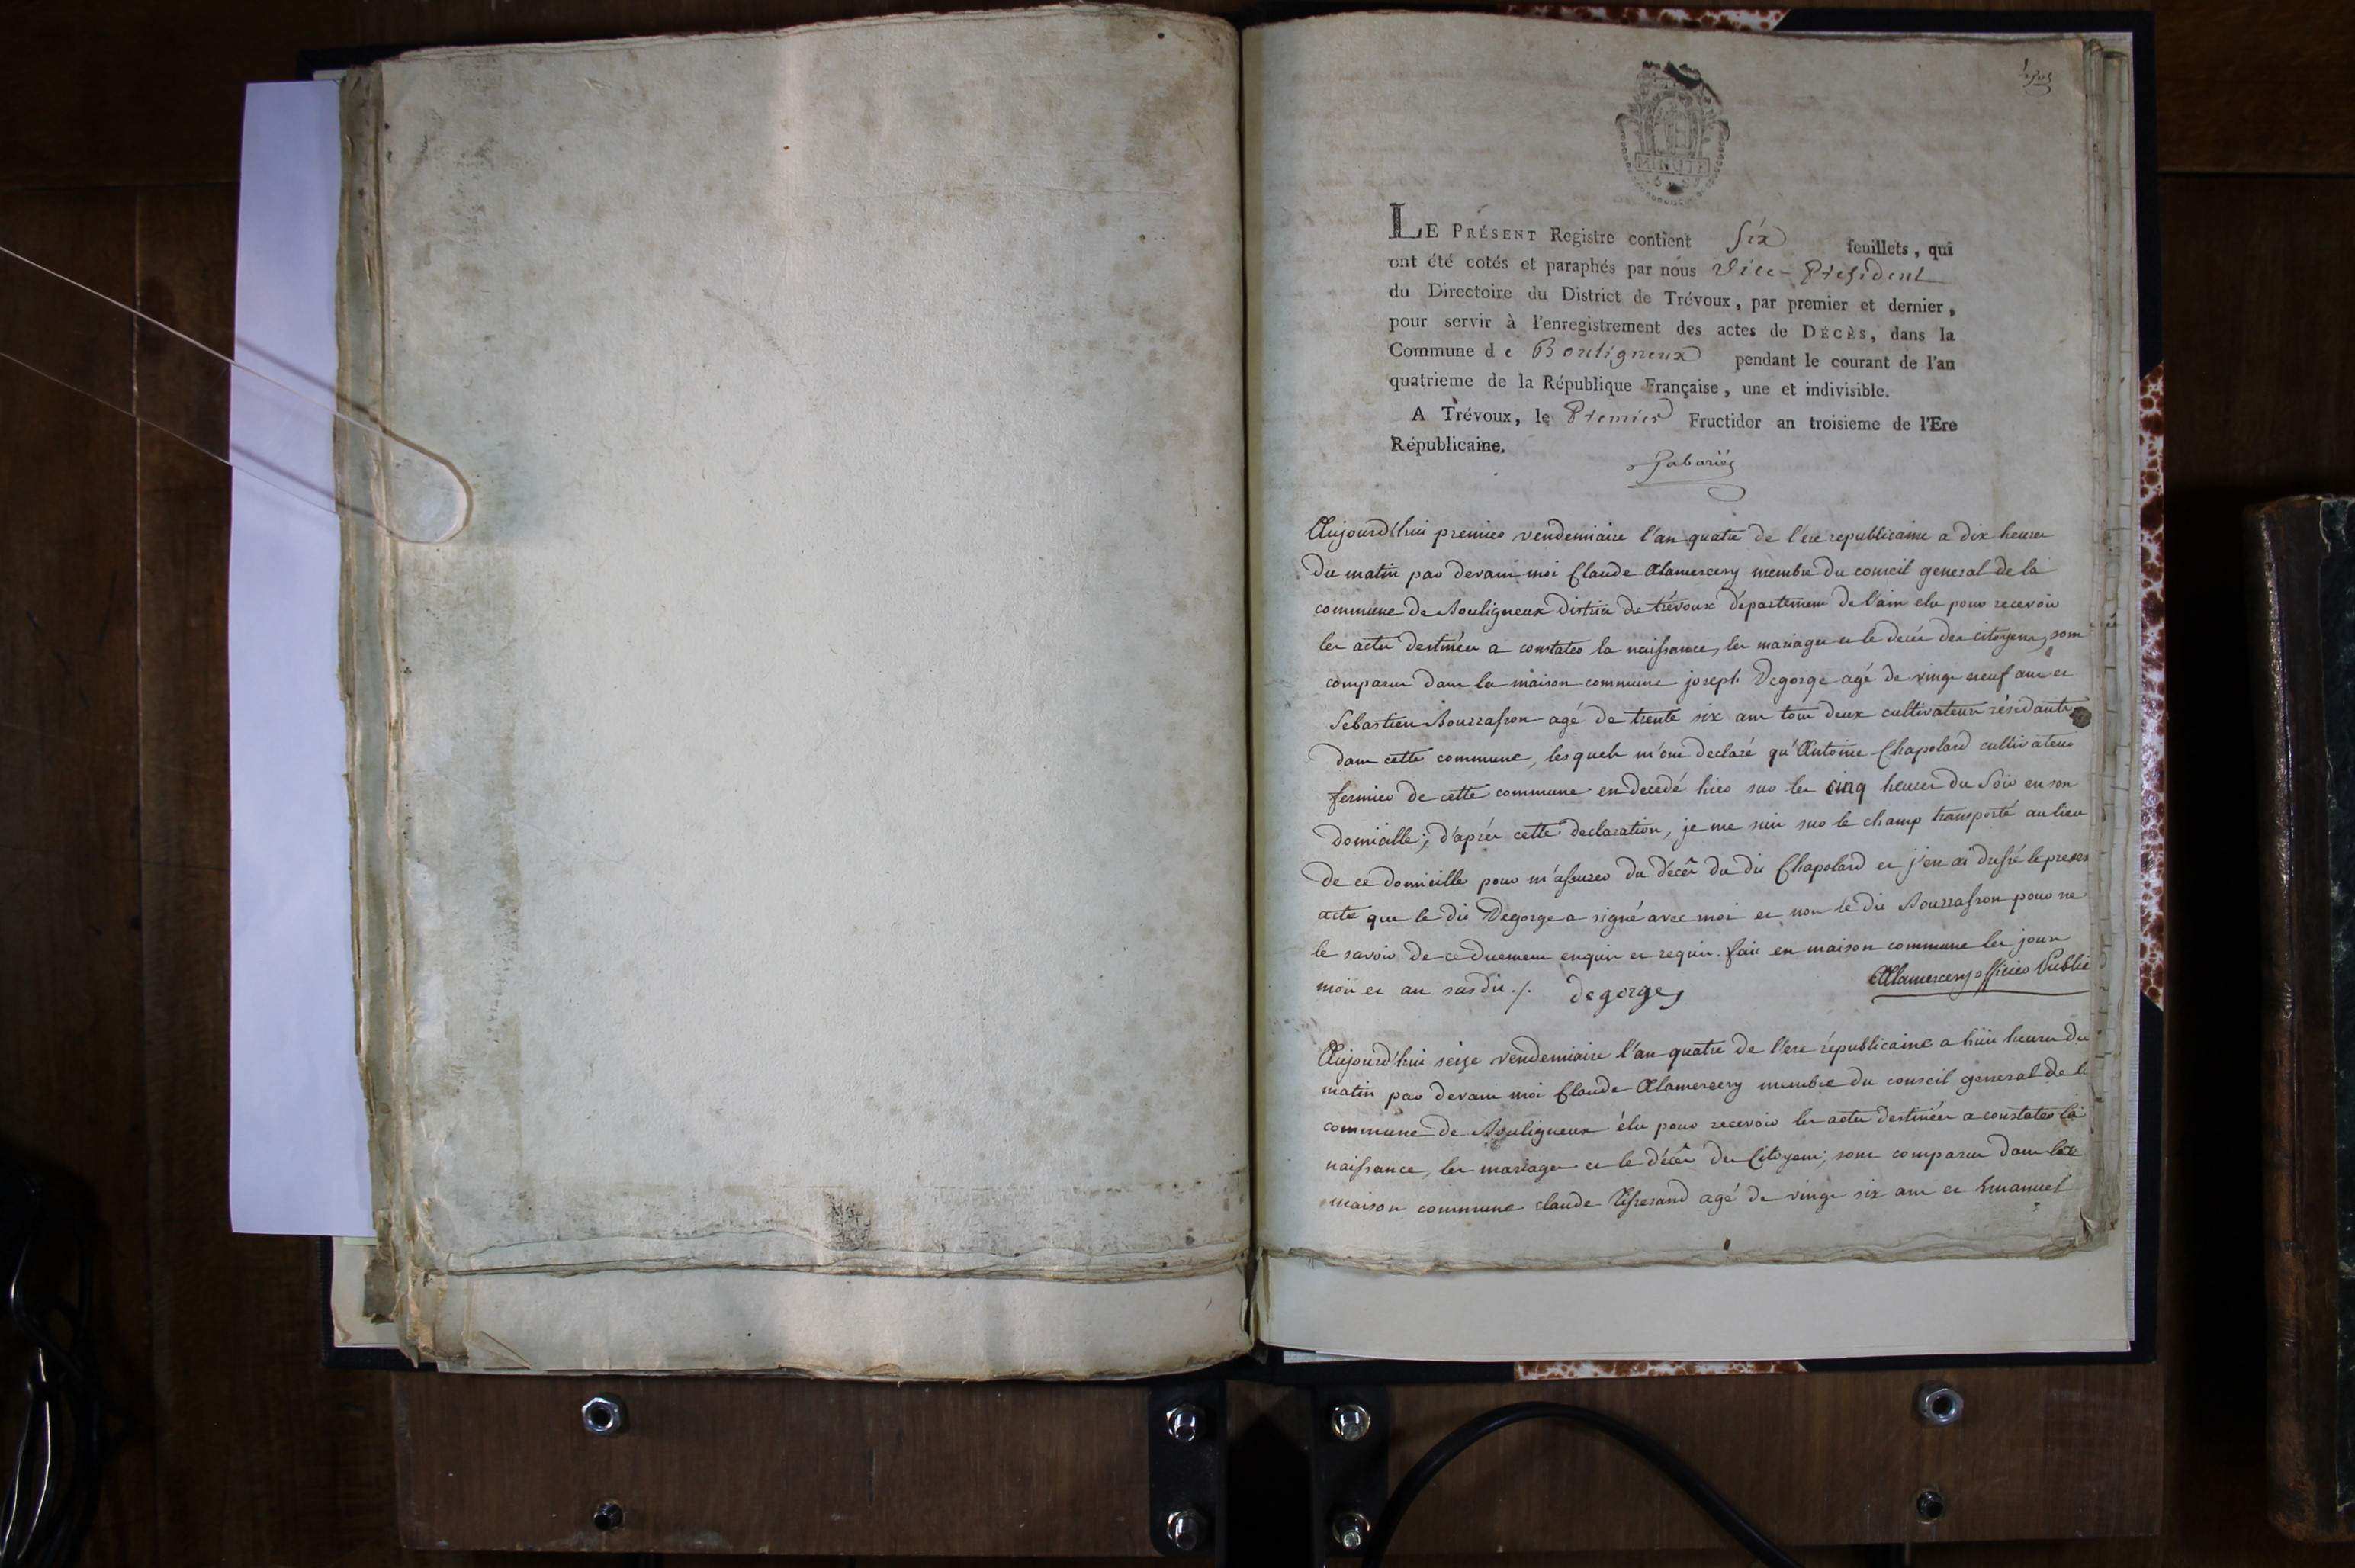 LE PRÉSENT Registre contient Six feuillets, qui
ont été cotés et paraphés par nous Vice-President
du Directoire du District de Trévoux, par premier et dernier,
pour servir à l'enregistrement des actes de DÉCÈS, dans la
Commune de Bouligneux pendant le courant de l'an
quatrieme de la République Française, une et indivisible.
A Trévoux, le Premier Fructidor an troisieme de l'Ere
Républicaine.
Aujourd'hui premier vendemiaire l'an quatre de l'ere republicaine a dix heures
du matin par devant moi Claude Alamercery membre du conseil general de la
commune de Bouligneux district de trévoux département de l'ain elu pour recevoir
les actes destinées a constater la naissance, les mariages et le decès des citoyens, sont
comparus dans la maison commune joseph Degorge agé de vingt neuf ans et
Sebastien Bourrasson agé de trente six ans tous deux cultivateurs résidants
dans cette commune, lesquels m'ont declaré qu'Antoine Chapolard cultivateur
fermier de cette commune est decedé hier sur les cinq heures du Soir en son
domicille; d'après cette declaration, je me suis sur le champ transporté au lieu
de ce domicille pour m'assurer du décès du dit Chapolard et j'en ai dressé le present
acte que le dit Degorge a signé avec moi et non le dit Bourrasson pour ne
le savoir de ce duement enquis et requis. fait en maison commune les jour
mois et an susdit ./. degorge
Alamercery officier Public
Aujourd'hui seize vendemiaire l'an quatre de l'ere républicaine a huit heures du
matin par devant moi Claude Alamercery membre du conseil general de la
commune de Bouligneux élu pour recevoir les actes destinées a constater la
naissance, les mariages et le décès des Citoyens; sont comparus dans la
maison commune claude agé de vingt six ans et Emanuel